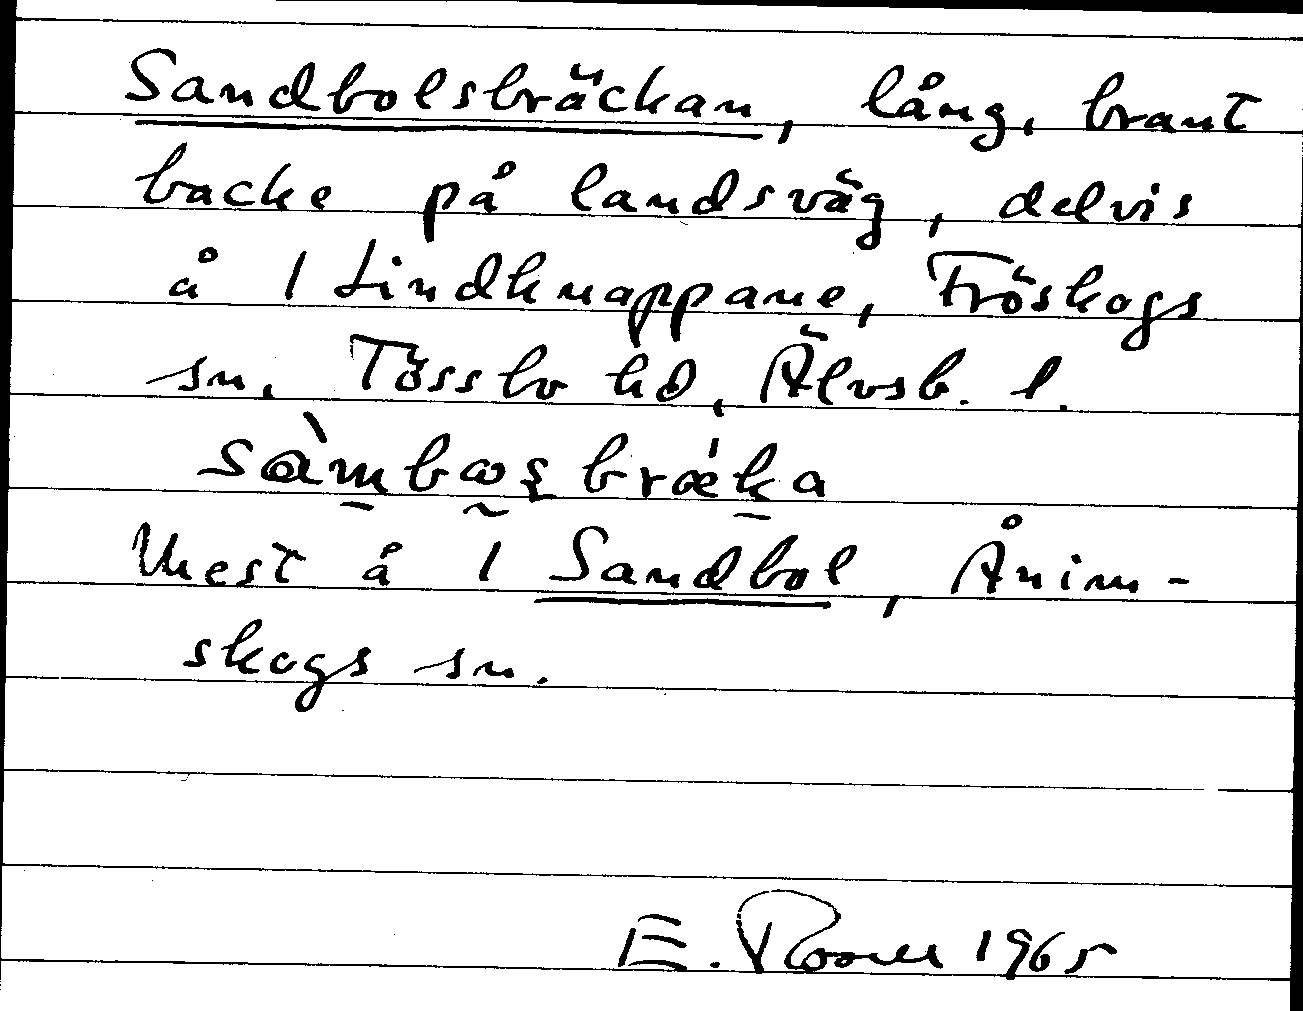 Sandbolsbräckan, lång, brant
backe på landsväg, delvis
å 1 Lindknappane, Fröskogs
sn. Tössbo hd, Älvsb. l.
Mest å 1 Sandbol, Ånim-
skogs sn.
E. 1965